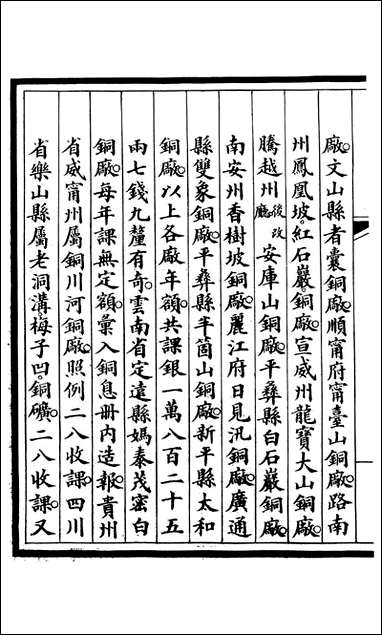 廠。文山縣者囊銅廠。順甯府甯臺山銅廠。路南
州鳳凰坡。紅石巖。銅廠。宣威州龍寶大山銅廠。
騰越州後改廳安庫山銅廠。平彝縣白石巖銅廠。
南安州香樹坡銅廠。麗江府日見汛銅廠。廣通
縣雙象銅廠。平彝縣半箇山銅廠。新平縣太和
銅廠。以上各廠年額。共課銀一萬八百二十五
兩七錢九釐有奇。雲南省定遠縣媽泰茂密白
銅廠。每年課無定額。彙入銅息册内造報。貴州
省威甯州屬銅川河銅廠。照例二八收課。四川
省樂山縣屬老洞溝梅子凹。銅礦。二八收課。又